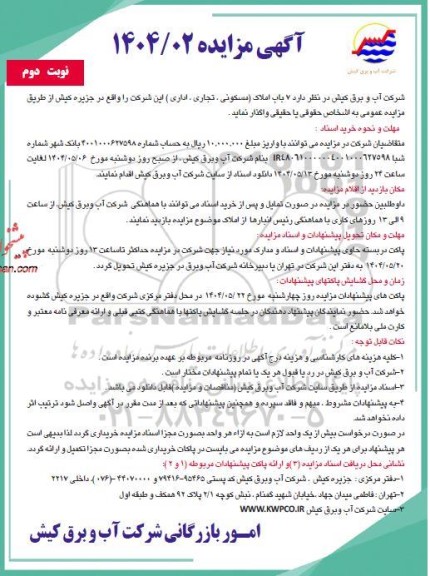 آگهی مزایده ۱۴۰۴/۰۲
شرکت آب و برق کیش
نوبت دوم
شرکت آب و برق کیش در نظر دارد ۷ باب املاک (مسکونی ، تجاری ، اداری ) این شرکت را واقع در جزیره کیش از طریق
مزایده عمومی به اشخاص حقوقی یا حقیقی واگذار نماید.
مهلت و نحوه خرید اسناد :
متقاضیان شرکت در مزایده می توانند با واریز مبلغ ۱۰,۰۰۰,۰۰۰ ریال به حساب شماره ۴۰۰۱۰۰۰۶۲۷۵۹۸ بانک شهر شماره
شبا بنام شرکت آب و برق کیش ، از صبح روز دوشنبه مورخ ۱۴۰۴/۰۵/۰۶ لغایت
ساعت ۲۴ روز دوشنبه مورخ ۱۴۰۴/۰۵/۱۳ دانلود اسناد از سایت شرکت آب و برق کیش اقدام نمایند.
مکان بازدید از اقلام مزایده:
داوطلبین حضور در مزایده در صورت تمایل و پس از خرید اسناد می توانند با هماهنگی شرکت آب و برق کیش، از ساعت
۹ الی ۱۳ روزهای کاری با هماهنگی رئیس انبارها از املاک موضوع مزایده بازدید نمایند.
مهلت و مکان تحویل پیشنهادات و اسناد مزایده:
پاکت در بسته حاوی پیشنهادات و اسناد و مدارک مورد نیاز جهت شرکت در مزایده حداکثر تا ساعت ۱۳ روز دوشنبه مورخ
۱۴۰۴/۰۵/۲۰ به دفتر این شرکت در تهران یا دبیرخانه شرکت آب و برق در جزیره کیش تحویل گردد.
زمان و محل گشایش پاکتهای پیشنهادات :
پاکت های پیشنهادات مزایده روز چهارشنبه مورخ ۱۴۰۴/۰۵/۲۲ در محل دفتر مرکزی شرکت واقع در جزیره کیش گشوده
خواهد شد. حضور نمایندگان پیشنهاد دهندگان در جلسه گشایش پاکتها با هماهنگی کتبی قبلی و ارائه معرفی نامه معتبر و
کارت ملی بلامانع است .
نکات قابل توجه :
۱-کلیه هزینه های کارشناسی و هزینه درج آگهی در روزنامه مربوطه بر عهده برنده مزایده است.
۲-شرکت آب و برق کیش در رد یا قبول هر یک یا تمام پیشنهادات مختار است .
۳-اسناد مزایده از طریق سایت شرکت آب و برق کیش (مناقصات و مزایده )قابل دانلود می باشد.
۴-به پیشنهادات مشروط ، مبهم و فاقد سپرده و همچنین پیشنهاداتی که بعد از مدت مقرر در آگهی واصل شود ترتیب اثر
داده نخواهد شد.
در صورت درخواست بیش از یک واحد لازم است به ازاء هر واحد بصورت مجزا اسناد مزایده خریداری گردد لذا بدیهی است
هر پیشنهاد برای هر یک از ردیف های موضوع مزایده می بایست در پاکات خریداری شده بصورت مجزا تکمیل و ارائه گردد.
نشانی محل دریافت اسناد مزایده (۳)و ارائه پاکت پیشنهادات مربوطه (۱ و ۲):
۱-دفتر مرکزی : جزیره کیش . شرکت آب و برق کیش کد پستی ۹۵۴۶۵-۷۹۴۱۶ و ۴۴۰۷۰۰۰۰ (۰۷۶)، داخلی ۲۲۱۷
۲-تهران : فاطمی میدان جهاد ،خیابان شهید گمنام . نبش کوچه ۲/۱ پلاک ۹۲ همکف و طبقه اول
۳-سایت شرکت آب و برق کیش WWW.KWPCO.IR
امور بازرگانی شرکت آب و برق کیش
ParsNamadData
۰۲۱-۸۸۳۴۹۶۷۰-۵